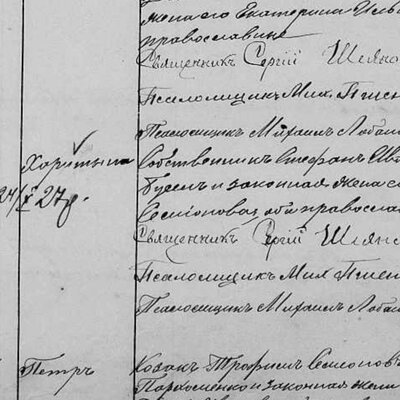 жена его Екатерина
православные
Священникъ Сергій Шеяно
Псаломщикъ Мих. Пшен
Псаломщикъ Михаилъ Лобан
Харитина
Собственникъ Стефанъ
и законная жена
24/ 27 г.
православн
Священникъ Сергій Шеян
Псаломщикъ Мих Пшен
Псаломщикъ Михаилъ Лобан
Петръ
Козакъ Трофимъ Семіоновъ
Пархоменко и законная жена